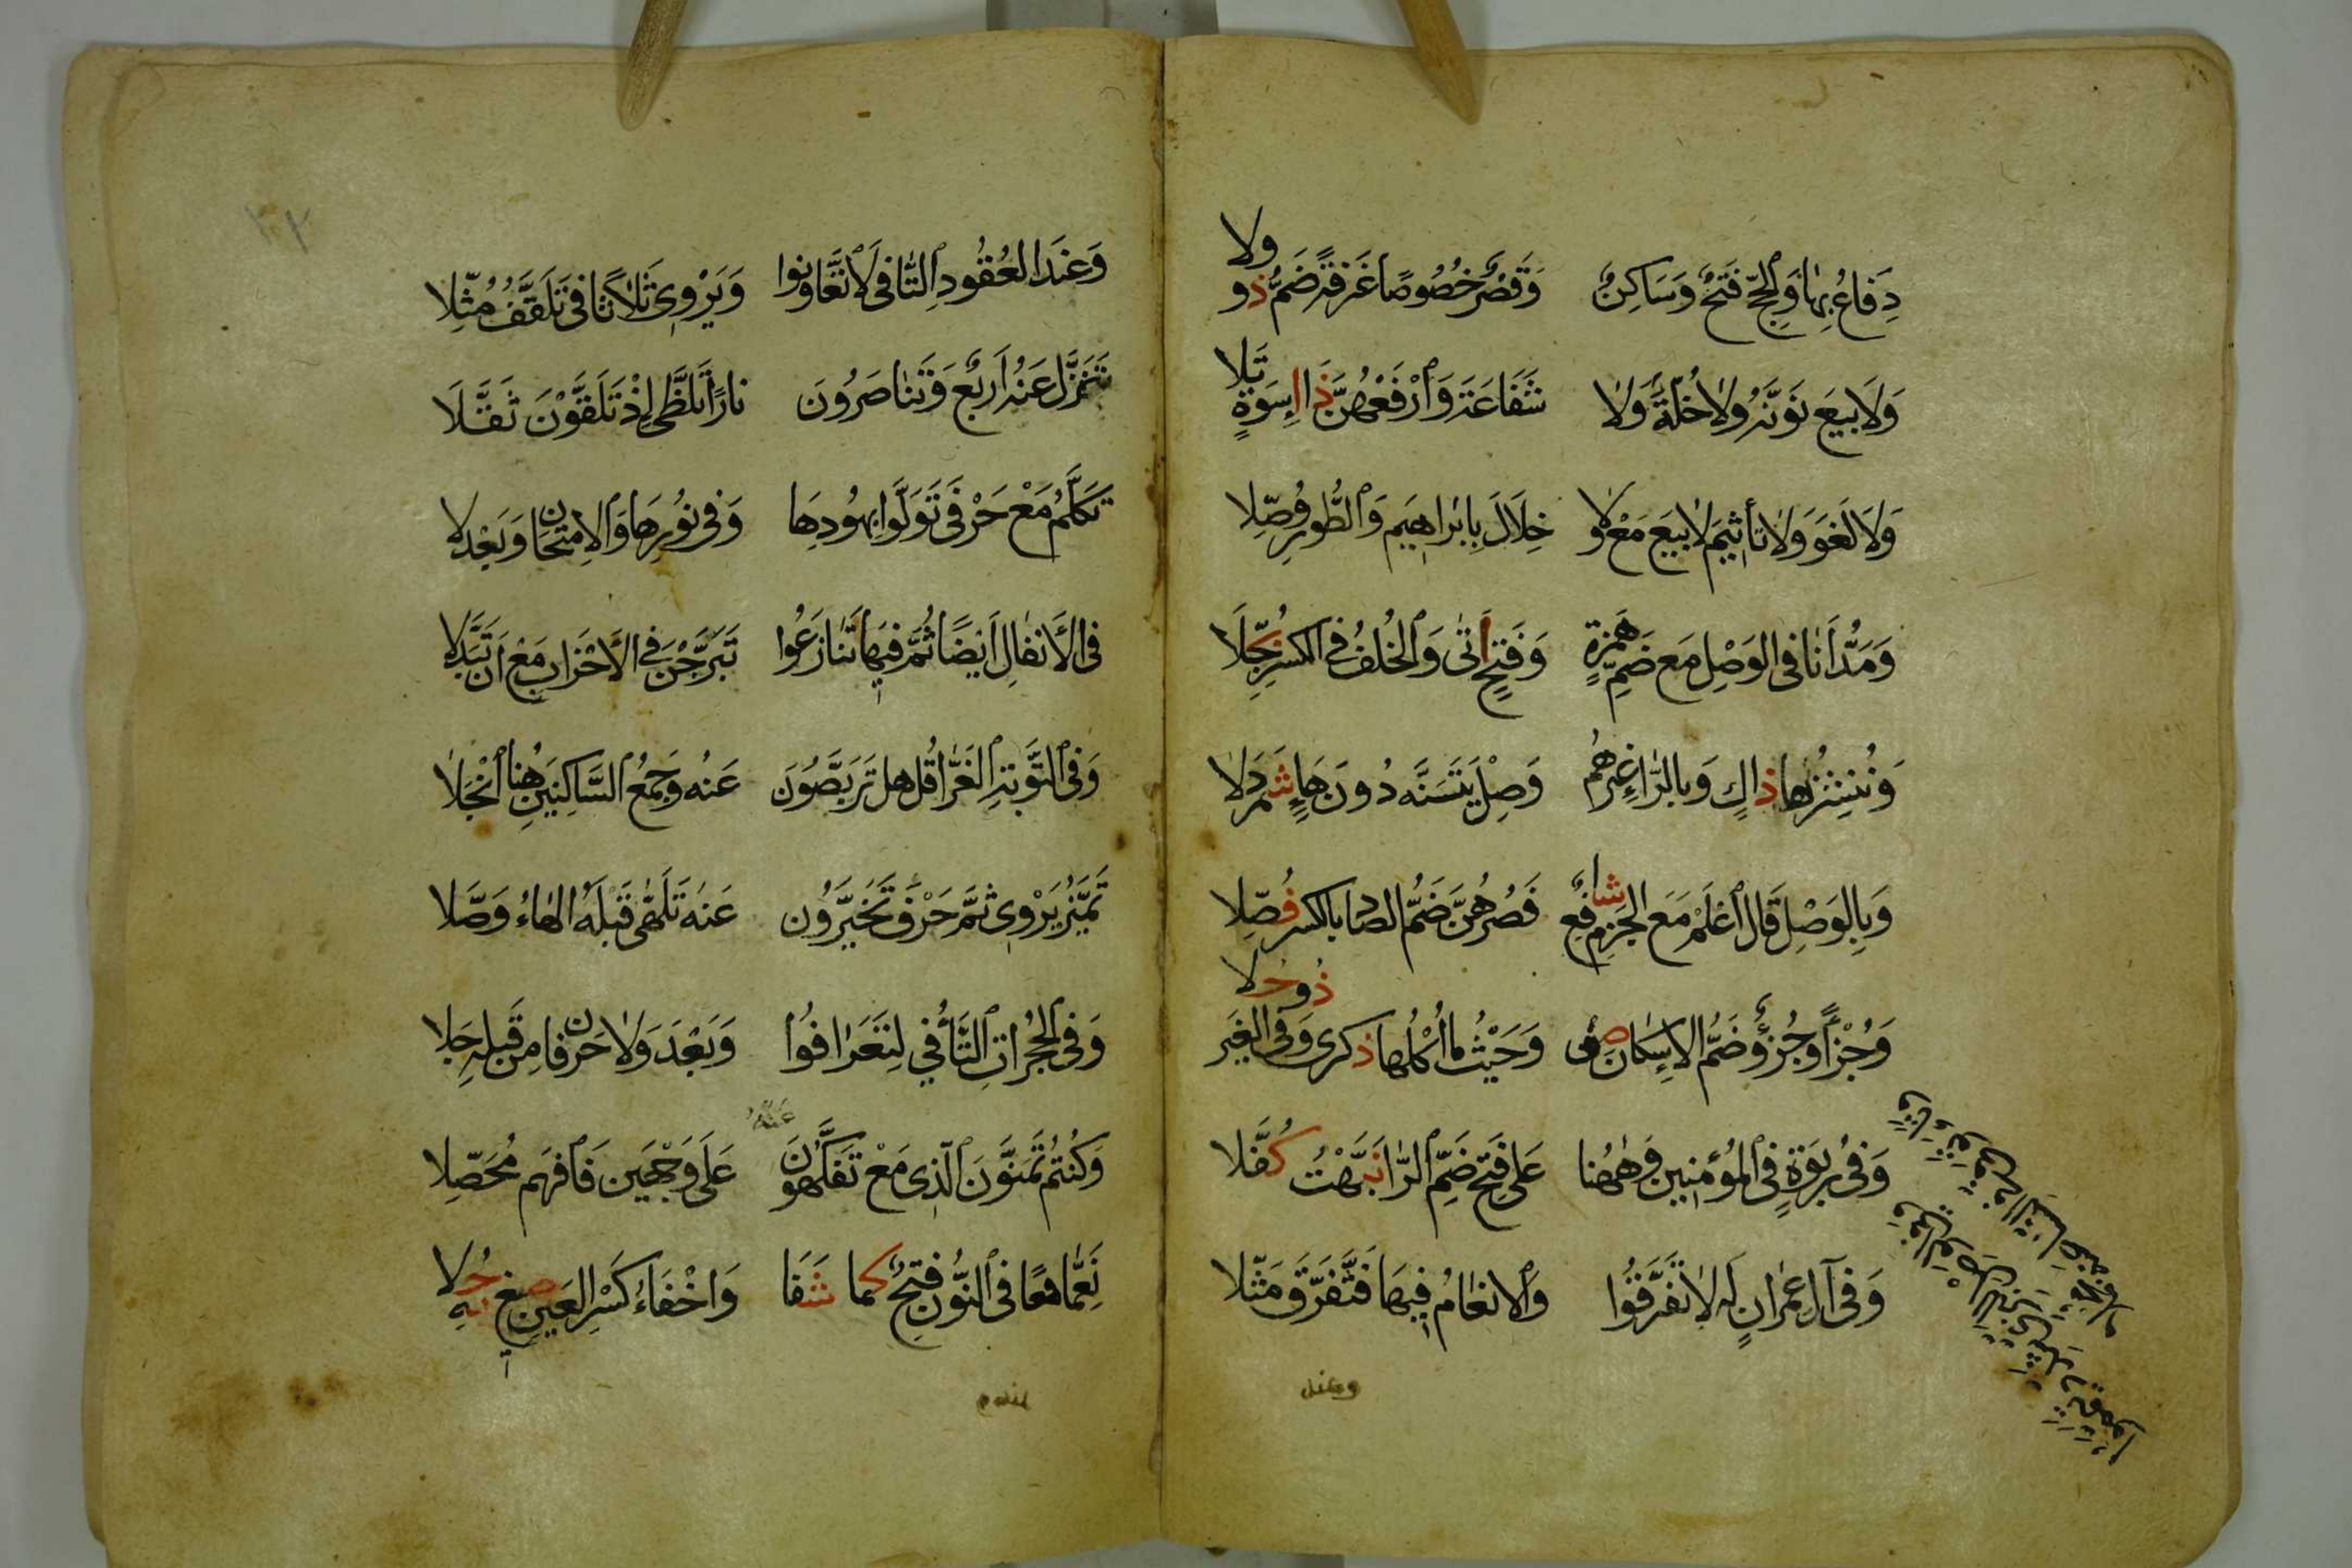 دِفَاعُ بِهَا وَالْحَجِّ فَتْحٌ وَسَاكِنٌ وَقَصْرٌ خُصُوصًا غَرْفَةً ضَمَّ ذُو وِلَا
وَلَا بَيْعَ نَوِّنْهُ وَلَا خُلَّةٌ وَلَا شَفَاعَةَ وَارْفَعْهُنَّ ذَا اِسْوَةٍ تَلَا
وَلَا لَغْوَ وَلَا تَأْثِيمَ لَا بَيْعَ مَعْ وَلَا خِلَالَ بِاِبْرَاهِيمَ وَالطُّورِ وُصِّلَا
وَمَدُّ أَنَا فِي الوَصْلِ مَعَ ضَمِّ هَمْزَةٍ وَفَتْحٍ أَتَى وَالْخُلْفُ فِي الكَسْرِ بُجِّلَا
وَنُنْشِزُهَا ذَاكٍ وَبِالرَّا غَيْرُهُمْ وَصِلْ يَتَسَنَّهْ دُونَ هَاءٍ شَمَرْدَلَا
وَبِالوَصْلِ قَالَ اعْلَمْ مَعَ الجَزْمِ شَافِعٌ فَصُرْهُنَّ ضَمُّ الصاد بالكسر فُصِّلَا
وَجُزْأً وَجُزْؤٌ ضَمُّ الاِسْكَانَ صِفْ وَحَيْثُمَا أُكْلُهَا ذكرى وَفِي الغَيْرِ ذُو حُلَا
وَفِي رَبْوَةٍ فِي المُؤْمِنِينَ وَهٰهُنَا عَلَى فَتْحِ ضَمِّ الرَّا نَبَّهْتُ كُفَّلَا
وفي الوصل للبزي شدد تيمموا وتاء توفى في النسا عنه مجملا
وَفِي آلِ عِمْرَانٍ لَهُ لَا تَفَرَّقُوا وَالانْعَامُ فِيهَا فَتَفَرَّقَ مَثَّلَا
وعند
٣٢
وَعِنْدَ العُقُودِ التَّا فِي لَا تَعَاوَنُوا وَيَرْوِي ثَلَاثًا فِي تَلَقَّفُ مُثَّلَا
تَنَزَّلُ عَنْهُ أَرْبَعٌ وَتَنَاصَرُونَ نَارًا تَلَظَّى اِذْ تَلَقَّوْنَ ثَقَّلَا
تَكَلَّمُ مَعْ حَرْفَيْ تَوَلَّوْا بِهُودِهَا وَفِي نُورِهَا وَالاِمْتِحَانِ وَبَعْدَ لَا
فِي الأَنْفَالِ أَيْضًا ثُمَّ فِيهَا تَنَازَعُوا تَبَرَّجْنَ فِي الأَحْزَابِ مَعْ أَنْ تَبَدَّلَا
وَفِي التَّوْبَةِ الغَرَّا قُلْ هَلْ تَرَبَّصُونَ عَنْهُ وَجَمْعُ السَّاكِنَيْنِ هُنَا انْجَلَا
تَمَيَّزُ يَرْوِي ثُمَّ حَرْفَ تَخَيَّرُونَ عَنْهُ تَلَهَّى قَبْلَهُ الهَاءُ وَصَّلَا
وَفِي الحُجُرَاتِ التَّاءُ فِي لِتَعَارَفُوا وَبَعْدَ وَلَا حَرْفَانِ مِنْ قَبْلِهِ جَلَا
وَكُنْتُمْ تَمَنَّوْنَ الَّذِي مَعْ تَفَكَّهُونَ عَنْهُ عَلَى وَجْهَيْنِ فَافْهَمْ مُحَصِّلَا
نَعِمَّا مَعًا فِي النُّونِ فَتْحٌ كَمَا شَفَا وَاخْفَاءُ كَسْرِ العَيْنِ صِيغَ بِهِ حُلَا